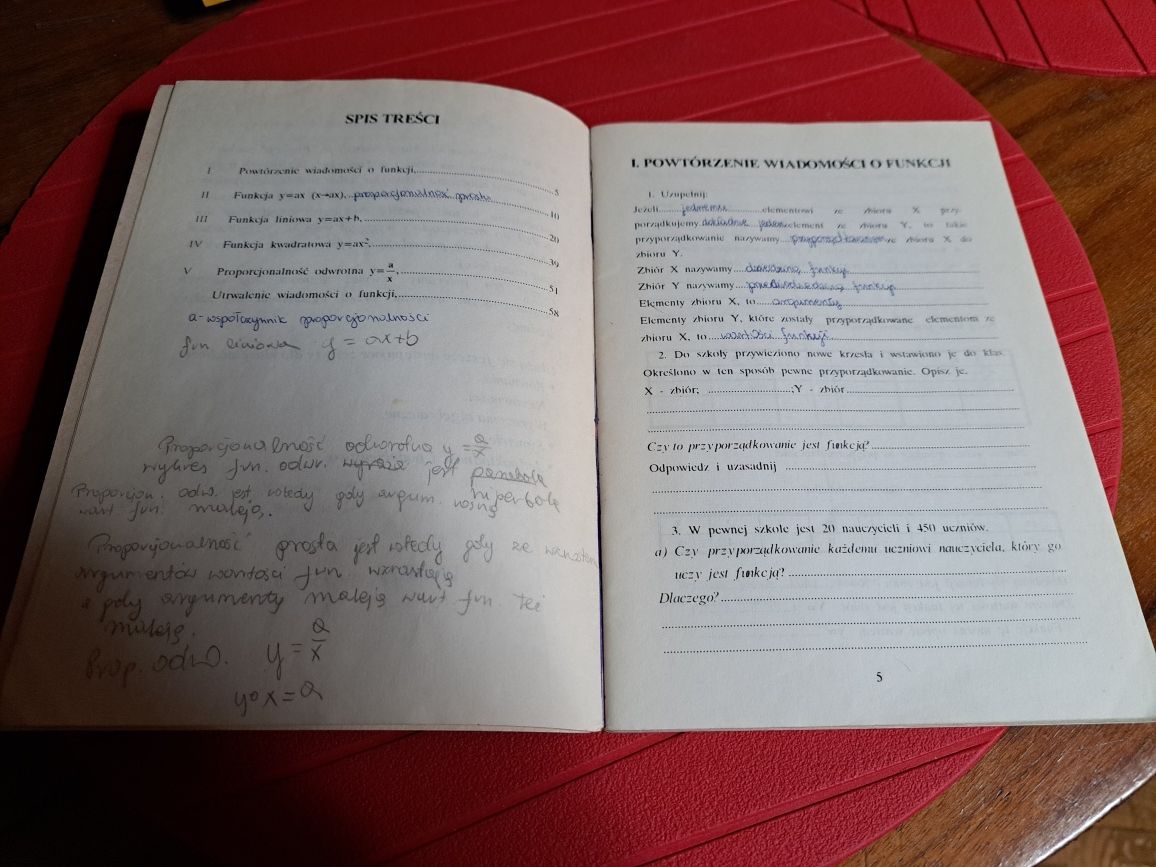 SPIS TREŚCI
I Powtórzenie wiadomości o funkcji, 5
II Funkcja y=ax (x→ax), proporcjonalność prosta 10
III Funkcja liniowa y=ax+b, 20
IV Funkcja kwadratowa y=ax², 39
V Proporcjonalność odwrotna y=a/x 51
Utrwalenie wiadomości o funkcji, 58
a-współczynnik proporcjonalności
fun liniowa y = ax+b
Proporcjonalność odwrotna y = a/x
wykres fun. odwr. jest parabola
hiperbolą
Proporcjon. odw. jest wtedy gdy argum. rosną
wart fun. maleją.
Proporcjonalność prosta jest wtedy gdy ze wzrostem
argumentów wartości fun. wzrastają
a gdy argumenty maleją wart fun. też
maleją.
Prop. odw. y = a/x
y∘x = a
I. POWTÓRZENIE WIADOMOŚCI O FUNKCJI
1. Uzupełnij:
Jeżeli jednemu elementowi ze zbioru X przy-
porządkujemy dokładnie jeden element ze zbioru Y, to takie
przyporządkowanie nazywamy przyporządkowaniem ze zbioru X do
zbioru Y.
Zbiór X nazywamy dziedziną funkcji
Zbiór Y nazywamy przeciwdziedziną funkcji
Elementy zbioru X, to argumenty
Elementy zbioru Y, które zostały przyporządkowane elementom ze
zbioru X, to wartości funkcji.
2. Do szkoły przywieziono nowe krzesła i wstawiono je do klas.
Określono w ten sposób pewne przyporządkowanie. Opisz je.
X - zbiór; ;Y - zbiór
Czy to przyporządkowanie jest funkcją?
Odpowiedz i uzasadnij
3. W pewnej szkole jest 20 nauczycieli i 450 uczniów.
a) Czy przyporządkowanie każdemu uczniowi nauczyciela, który go
uczy jest funkcją?
Dlaczego?
5